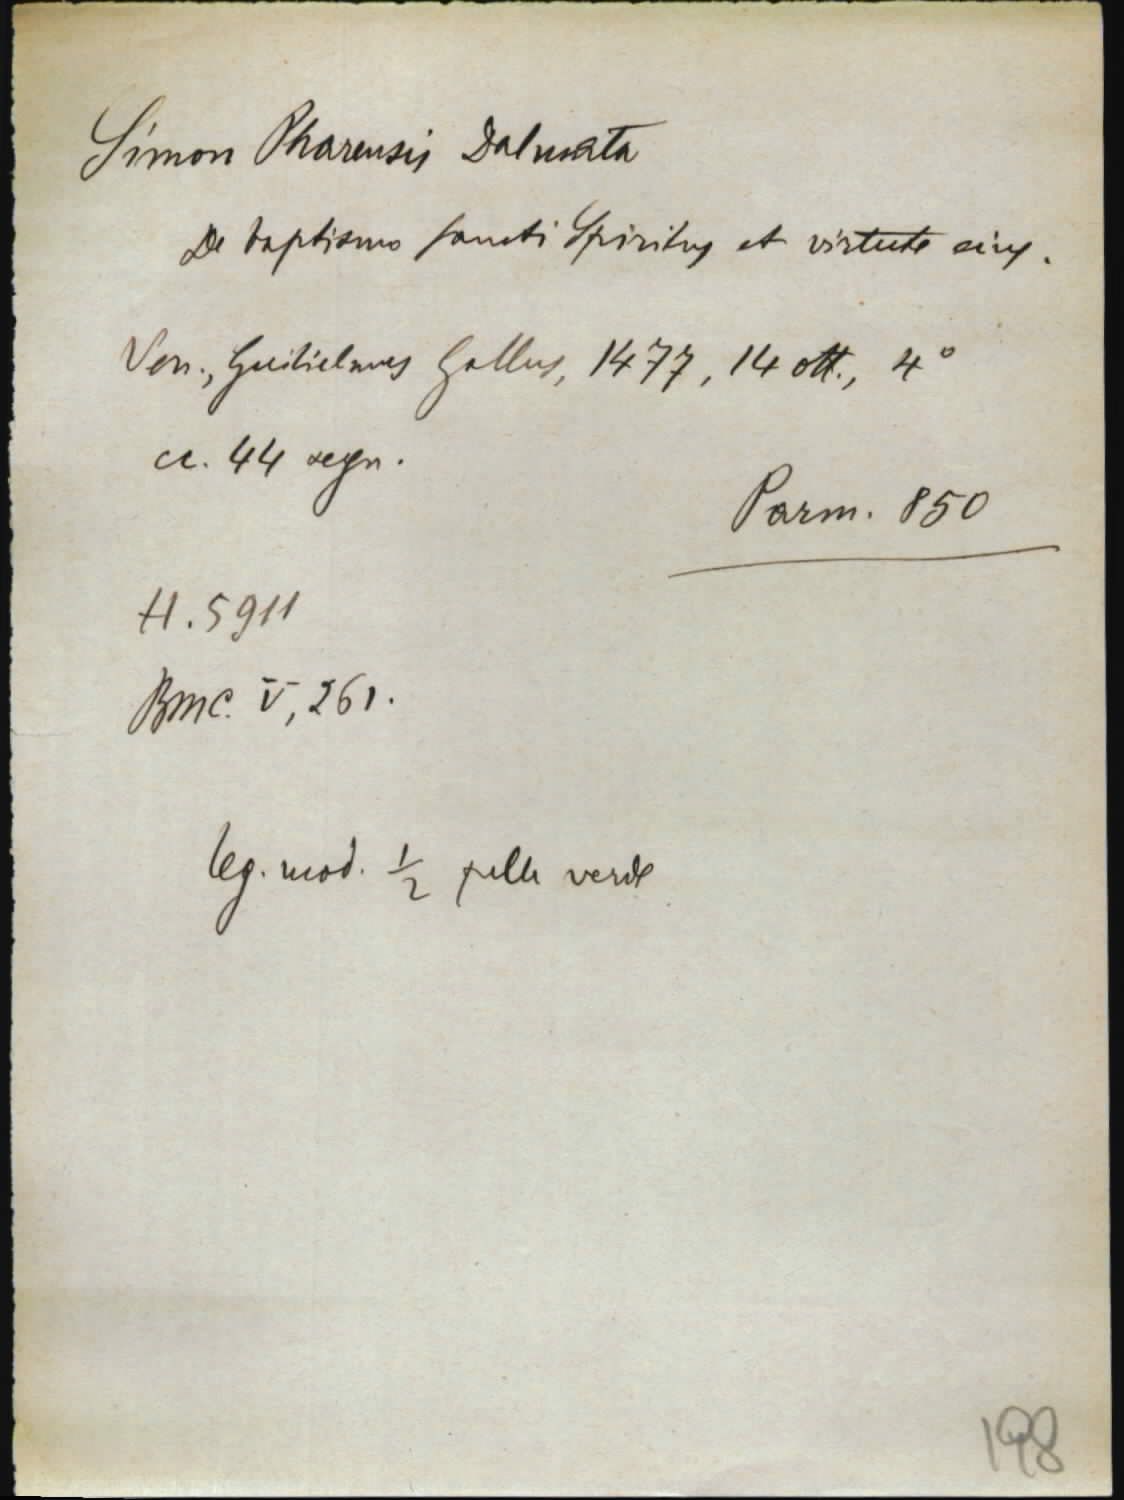 Simon Pharensis Dalmata
De baptismo sancti Spiritus et virtute eius.
Ven., Guilielmus Gallus, 1477, 14 ott., 4°
cc. 44 segn.
Parm. 850
H. 5911
BMC. V, 261.
leg. mod. 1/2 pelle verde
198